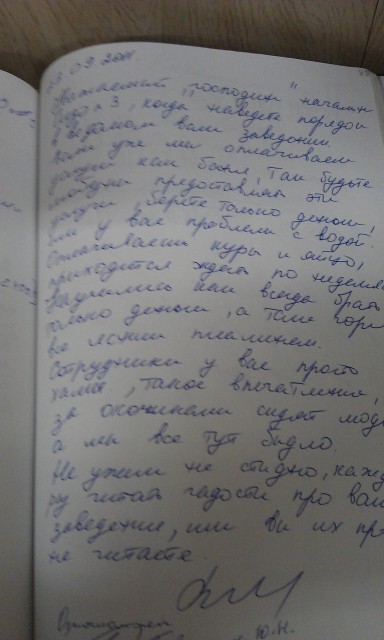 .09.2011
Уважаемый "господин" началь
"Чудо" З, когда наведете порядок
в ведомом вами заведении.
Коли уже мы оплачиваем
услуги как бомжи, Так будьте
предоставлять эти
услуги, берете только деньги!
То у вас проблема с водой.
Оплачиваешь куры и яйцо,
приходится ждать по неделям.
Научились как всегда брать
только деньги, а там гори
все ясным пламенем.
Сотрудники у вас просто
хамье, такое впечатление,
за окошками сидят люди
а мы все тут быдло.
Не ужели не стыдно, кажд
ру читать гадости про ваш
заведение, или вы их пр
не читаете.
Ю.Н.